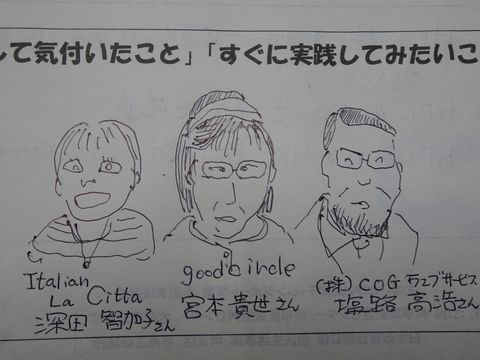 して気付いたこと」「すぐに実践してみたいこ
Italian
La Citta
深田 智加子さん
good circle
宮本貴世さん
(株)COGウェブサービス
塩路 高浩さん